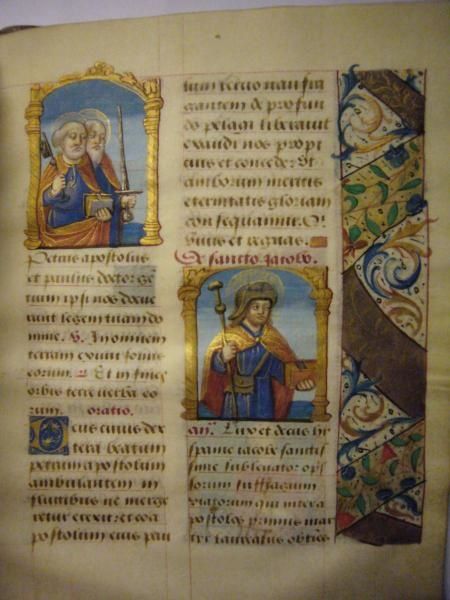 Petrus apostolus
et paulus doctor gen
tium ipsi nos docue
runt legem tuam do
mine. v. In omnem
terram exiuit sonus
eorum. r. Et in fines
orbis terre verba eo
rum. oratio.
Deus cuius dex
tera beatum
petrum apostolum
ambulantem in
fluctibus ne merge
retur erexit: et coa
postolum eius pau
lum tercio naufra
gantem de profun
do pelagi liberauit
exaudi nos propi
cius et concede: Ut
amborum meritis
eternitatis gloriam
consequamur. Q
viuis et regnas.
De sancto Jacobo.
an. Lux et decus hy
spanie iacobe sanctis
sime subleuator
sorum
viatorum qui inter a
postolos primus mar
tyr laureatus obtines